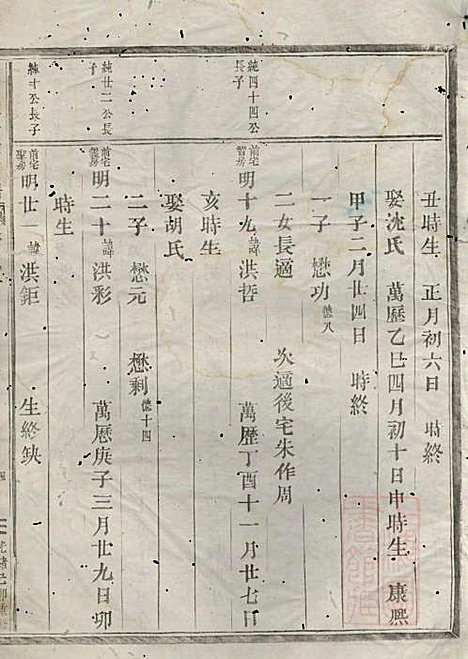 丑時生 正月初六日 時終
娶沈氏 萬歷乙巳四月初十日申時生 康熙
甲子二月廿四日 時終
一子 懋功 德八
二女長適 次適後宅朱作周
純四十四公長子
前宅智房 明十九 諱 洪哲 萬歷丁酉十一月廿七日
亥時生
娶胡氏
二子 懋元 懋剩 德十四
純廿二公長子
前宅智房 明二十 諱 洪彩 萬歷庚子三月廿九日卯
時生
純十公長子
前宅聖房 明廿一 諱 洪鉅 生終缺